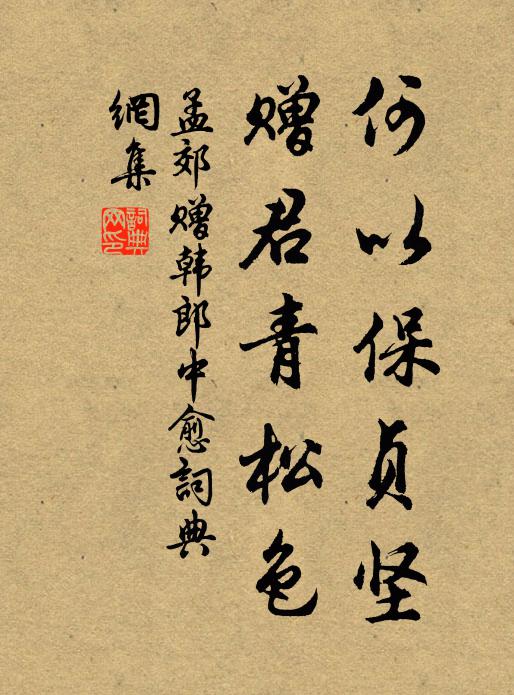 何以保贞坚
赠君青松色
孟郊赠韩郎中愈詞典
網集
詞典网印